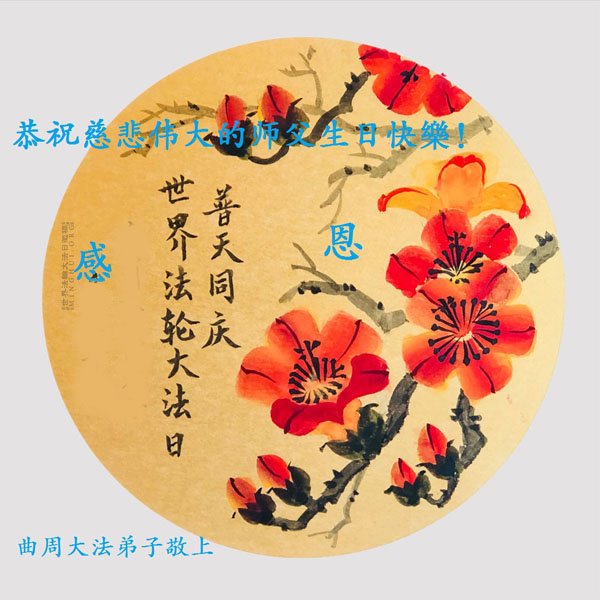 恭祝慈悲伟大的师父生日快樂!
感 恩
普天同庆
世界法轮大法日
MINGHUI.ORG
曲周大法弟子敬上